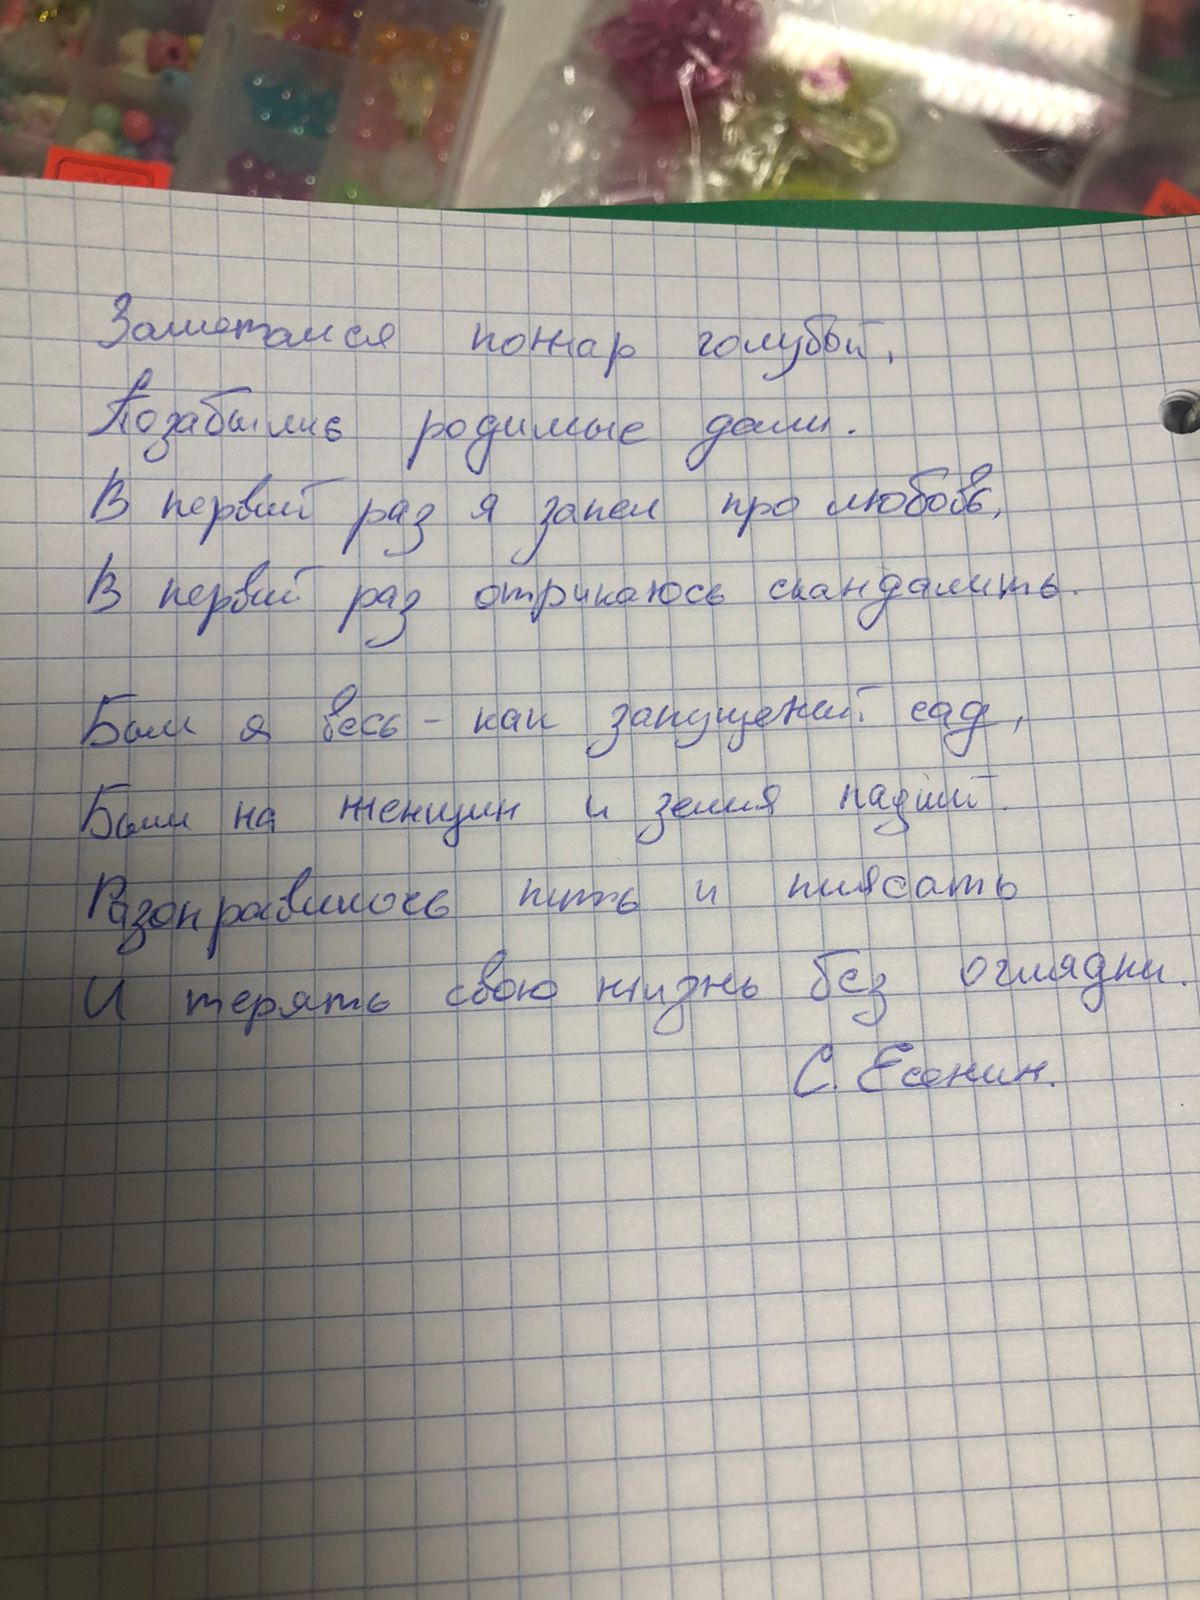 Заметался пожар голубой,
Позабылись родимые дали.
В первый раз я запел про любовь,
В первый раз отрикаюсь скандалить.
Был я весь - как запущеный сад,
Был на женщин и зелия падший.
Разонравилось пить и плясать
И терять свою жизнь без оглядки.
С. Есенин.